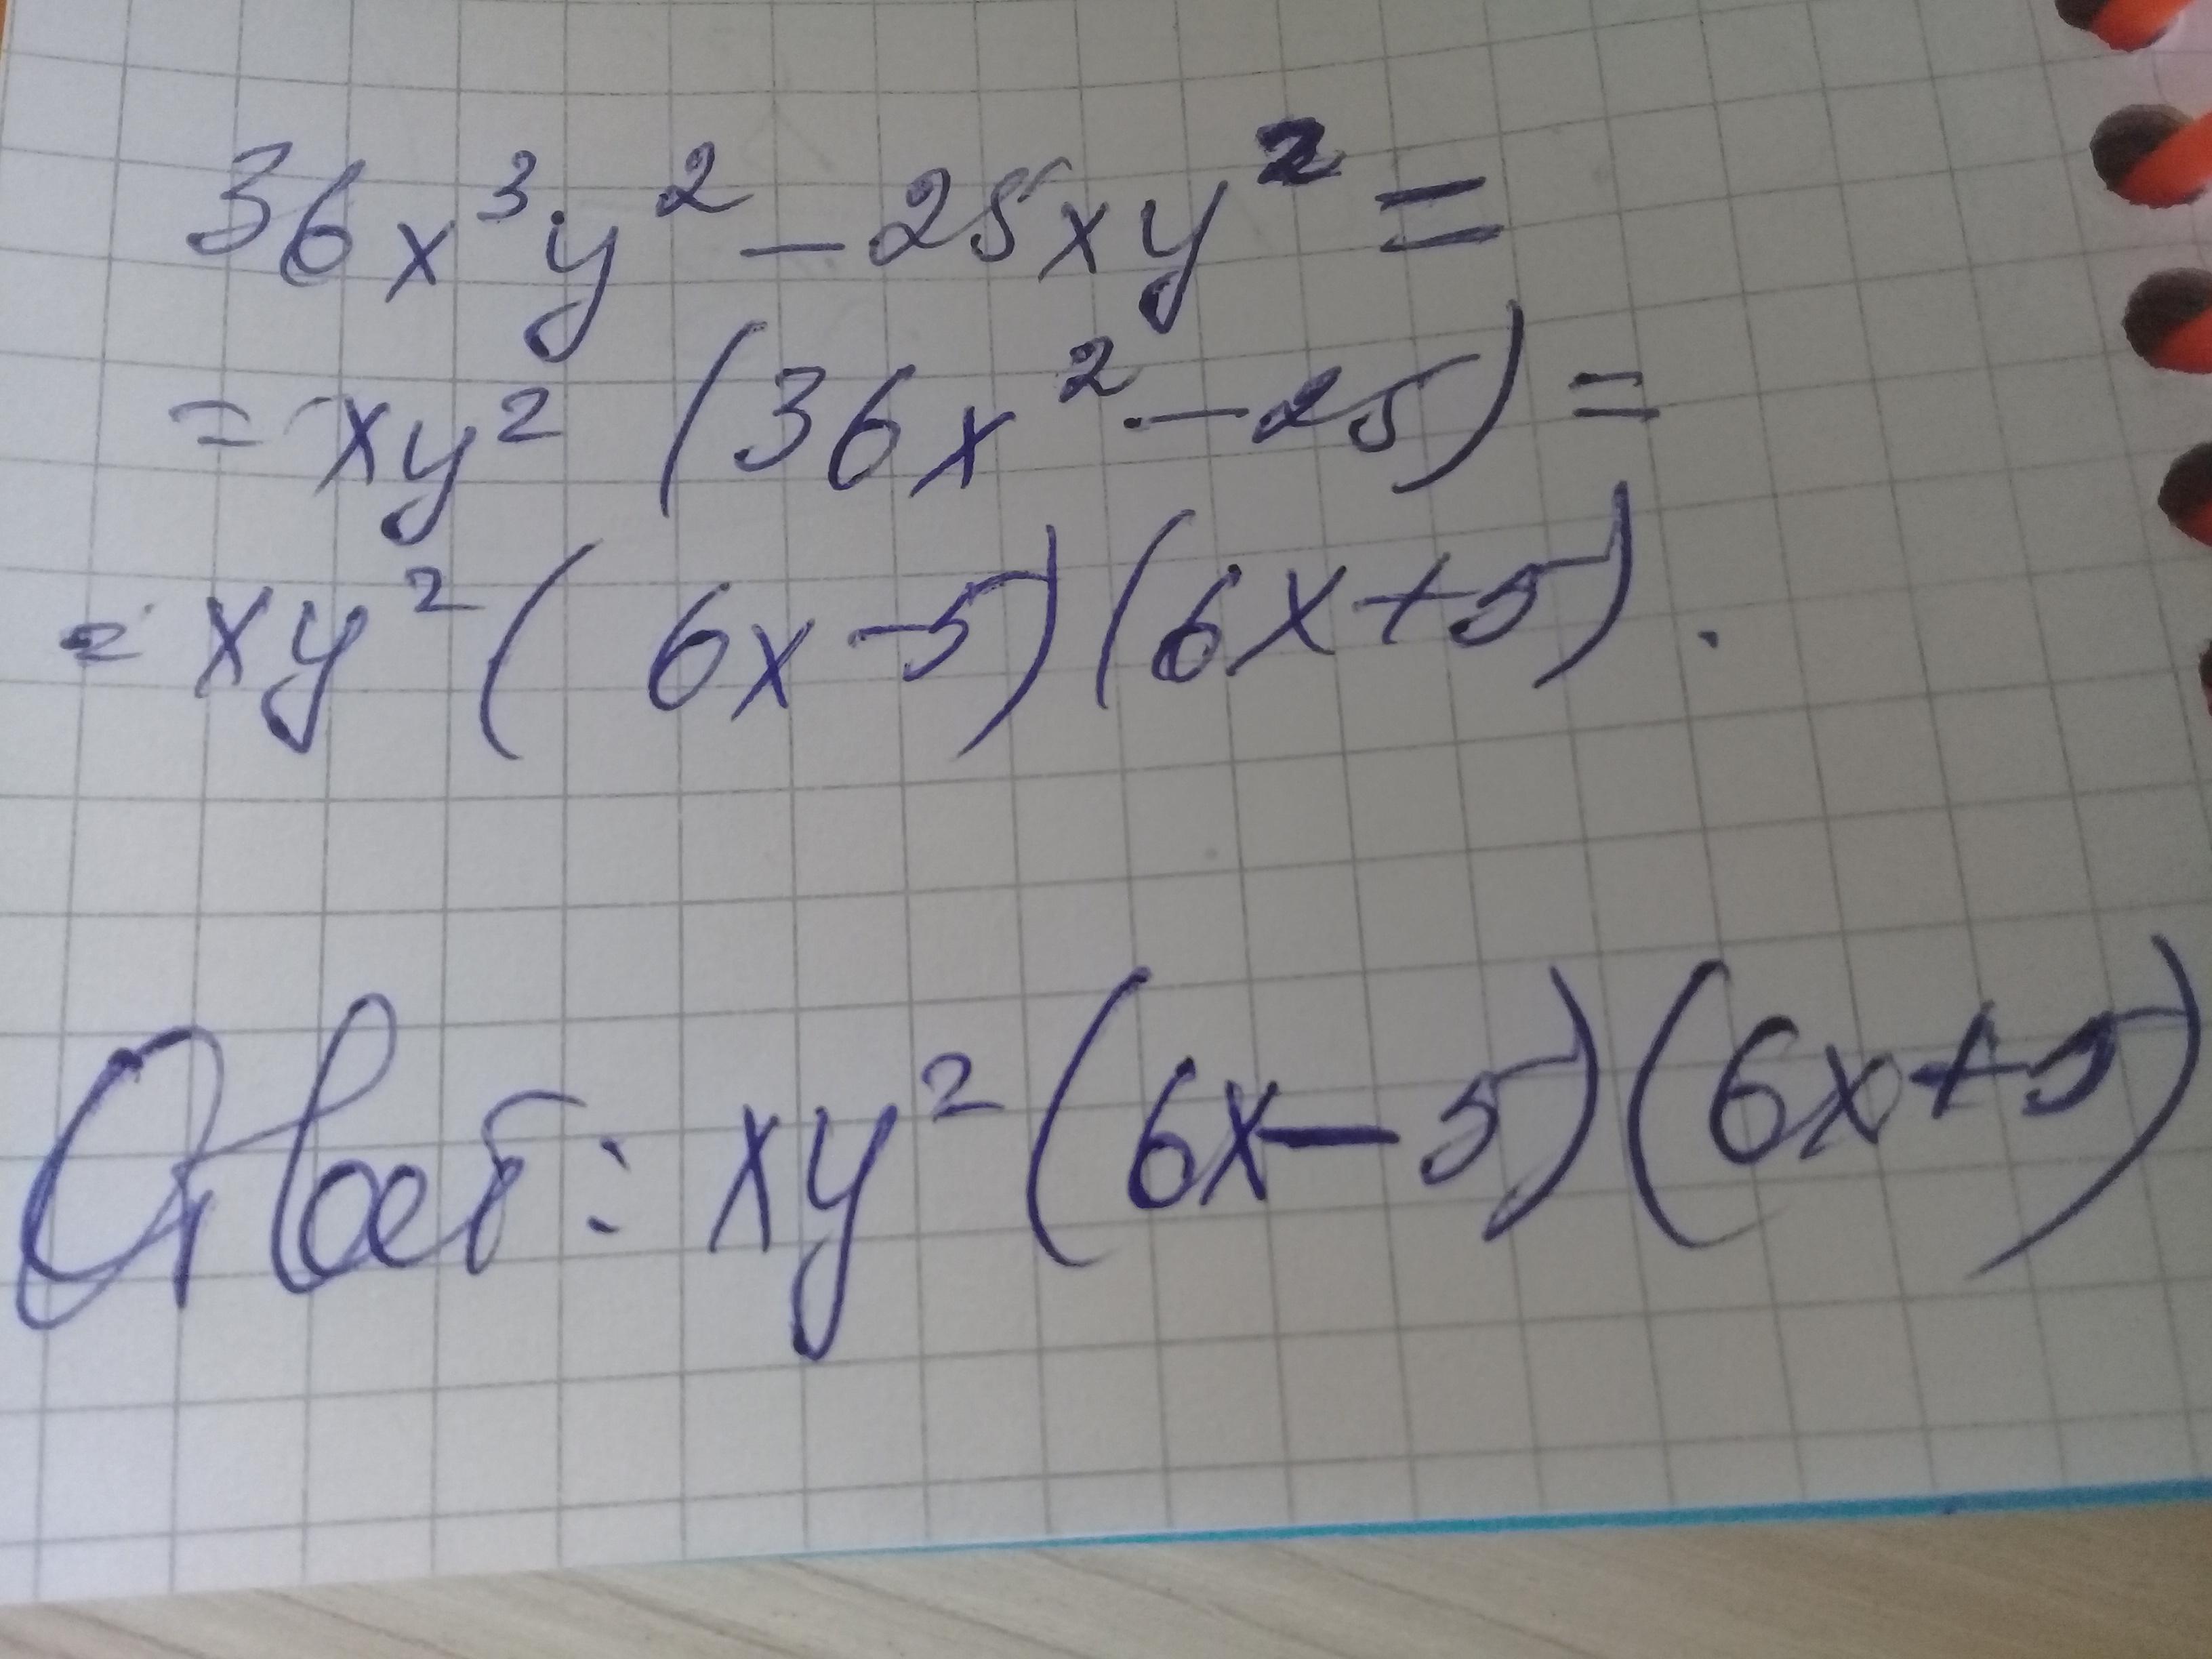 36x³y² - 25xy² =
= xy² (36x² - 25) =
= xy² (6x - 5)(6x + 5).
Ответ: xy² (6x - 5)(6x + 5)